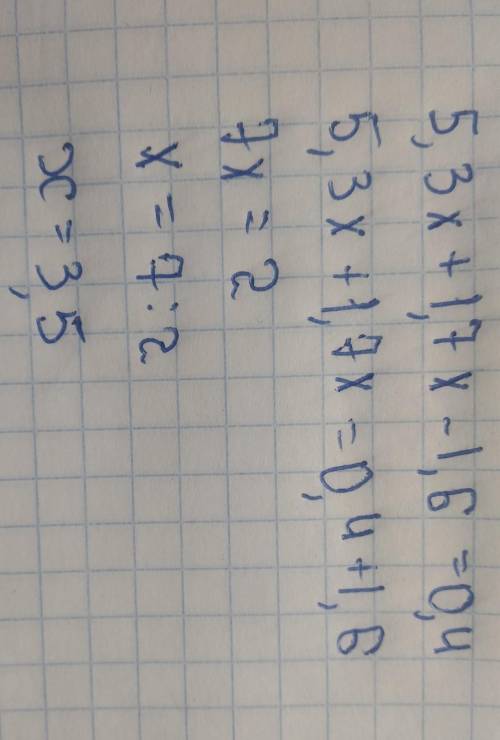 5,3x+1,7x-1,6=0,4
5,3x+1,7x=0,4+1,6
7x=2
x=7:2
x=3,5